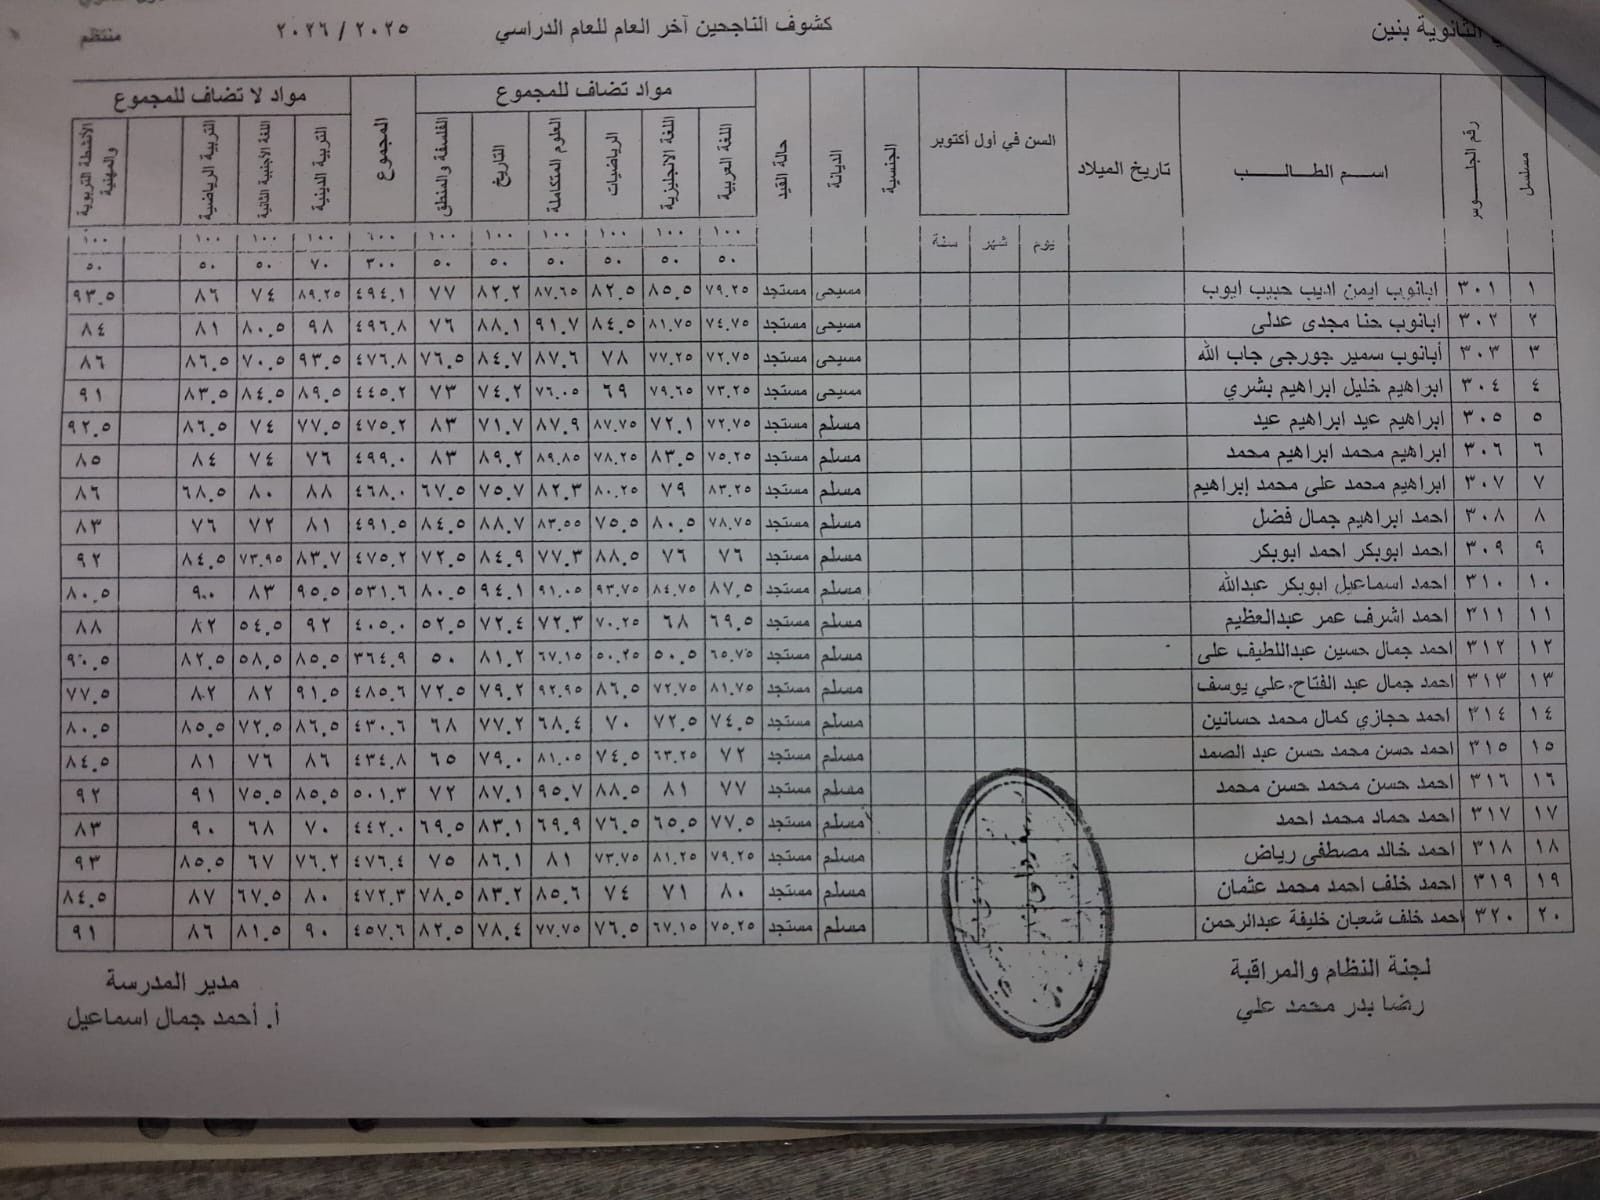 الثانوية بنين
كشوف الناجحين آخر العام للعام الدراسي ٢٠٢٥ / ٢٠٢٦
منتظم
مسلسل | رقم الجلـــوس | اسـم الطـــالــــب | تاريخ الميلاد | السن في أول أكتوبر | الجنسية | الديانة | حالة القيد | مواد تضاف للمجموع | المجموع | مواد لا تضاف للمجموع
يوم | شهر | سنة | اللغة العربية | اللغة الانجليزية | الرياضيات | العلوم المتكاملة | التاريخ | الفلسفة والمنطق | التربية الدينية | اللغة الأجنبية الثانية | التربية الرياضية | الأنشطة التربوية والمهنية
١٠٠ | ١٠٠ | ١٠٠ | ١٠٠ | ١٠٠ | ١٠٠ | ٦٠٠ | ١٠٠ | ١٠٠ | ١٠٠ | ١٠٠
٥٠ | ٥٠ | ٥٠ | ٥٠ | ٥٠ | ٥٠ | ٣٠٠ | ٧٠ | ٥٠ | ٥٠ | ٥٠
١ | ٣٠١ | ابانوب ايمن اديب حبيب ايوب | مسيحى | مستجد | ٧٩.٢٥ | ٨٥.٥ | ٨٢.٥ | ٨٧.٦٥ | ٨٢.٢ | ٧٧ | ٤٩٤.١ | ٨٩.٢٥ | ٧٤ | ٨٦ | ٩٣.٥
٢ | ٣٠٢ | ابانوب حنا مجدى عدلى | مسيحى | مستجد | ٧٤.٧٥ | ٨١.٧٥ | ٨٤.٥ | ٩١.٧ | ٨٨.١ | ٧٦ | ٤٩٦.٨ | ٩٨ | ٨٠.٥ | ٨١ | ٨٤
٣ | ٣٠٣ | أبانوب سمير جورجى جاب الله | مسيحى | مستجد | ٧٢.٧٥ | ٧٧.٢٥ | ٧٨ | ٨٧.٦ | ٨٤.٧ | ٧٦.٥ | ٤٧٦.٨ | ٩٣.٥ | ٧٠.٥ | ٨٦.٥ | ٨٦
٤ | ٣٠٤ | ابراهيم خليل ابراهيم بشري | مسيحى | مستجد | ٧٣.٢٥ | ٧٩.٦٥ | ٦٩ | ٧٦.٠٥ | ٧٤.٢ | ٧٣ | ٤٤٥.٢ | ٨٩.٥ | ٨٤.٥ | ٨٣.٥ | ٩١
٥ | ٣٠٥ | ابراهيم عيد ابراهيم عيد | مسلم | مستجد | ٧٢.٧٥ | ٧٢.١ | ٨٧.٧٥ | ٨٧.٩ | ٧١.٧ | ٨٣ | ٤٧٥.٢ | ٧٧.٥ | ٧٤ | ٨٦.٥ | ٩٢.٥
٦ | ٣٠٦ | ابراهيم محمد ابراهيم محمد | مسلم | مستجد | ٧٥.٢٥ | ٨٣.٥ | ٧٨.٢٥ | ٨٩.٨٥ | ٨٩.٢ | ٨٣ | ٤٩٩.٠ | ٧٦ | ٧٤ | ٨٤ | ٨٥
٧ | ٣٠٧ | ابراهيم محمد على محمد إبراهيم | مسلم | مستجد | ٨٣.٢٥ | ٧٩ | ٨٠.٢٥ | ٨٢.٣ | ٧٥.٧ | ٦٧.٥ | ٤٦٨.٠ | ٨٨ | ٨٠ | ٦٨.٥ | ٨٦
٨ | ٣٠٨ | احمد ابراهيم جمال فضل | مسلم | مستجد | ٧٨.٧٥ | ٨٠.٥ | ٧٥.٥ | ٨٣.٥٥ | ٨٨.٧ | ٨٤.٥ | ٤٩١.٥ | ٨١ | ٧٢ | ٧٦ | ٨٣
٩ | ٣٠٩ | احمد ابوبكر احمد ابوبكر | مسلم | مستجد | ٧٦ | ٧٦ | ٨٨.٥ | ٧٧.٣ | ٨٤.٩ | ٧٢.٥ | ٤٧٥.٢ | ٨٣.٧ | ٧٣.٩٥ | ٨٤.٥ | ٩٢
١٠ | ٣١٠ | احمد اسماعيل ابوبكر عبدالله | مسلم | مستجد | ٨٧.٥ | ٨٤.٧٥ | ٩٣.٧٥ | ٩١.٠٥ | ٩٤.١ | ٨٠.٥ | ٥٣١.٦ | ٩٥.٥ | ٨٣ | ٩٠ | ٨٠.٥
١١ | ٣١١ | احمد اشرف عمر عبدالعظيم | مسلم | مستجد | ٦٩.٥ | ٦٨ | ٧٠.٢٥ | ٧٢.٣ | ٧٢.٤ | ٥٢.٥ | ٤٠٥.٠ | ٩٢ | ٥٤.٥ | ٨٢ | ٨٨
١٢ | ٣١٢ | احمد جمال حسين عبداللطيف على | مسلم | مستجد | ٦٥.٧٥ | ٥٠.٥ | ٥٠.٢٥ | ٦٧.١٥ | ٨١.٢ | ٥٠ | ٣٦٤.٩ | ٨٥.٥ | ٥٨.٥ | ٨٢.٥ | ٩٠.٥
١٣ | ٣١٣ | احمد جمال عبد الفتاح علي يوسف | مسلم | مستجد | ٨١.٧٥ | ٧٢.٧٥ | ٨٦.٥ | ٩٢.٩٥ | ٧٩.٢ | ٧٢.٥ | ٤٨٥.٦ | ٩١.٥ | ٨٢ | ٨٢ | ٧٧.٥
١٤ | ٣١٤ | احمد حجازي كمال محمد حسانين | مسلم | مستجد | ٧٤.٥ | ٧٢.٥ | ٧٠ | ٦٨.٤ | ٧٧.٢ | ٦٨ | ٤٣٠.٦ | ٨٦.٥ | ٧٢.٥ | ٨٥.٥ | ٨٠.٥
١٥ | ٣١٥ | احمد حسن محمد حسن عبد الصمد | مسلم | مستجد | ٧٢ | ٦٣.٢٥ | ٧٤.٥ | ٨١.٠٥ | ٧٩.٠ | ٦٥ | ٤٣٤.٨ | ٨٦ | ٧٦ | ٨١ | ٨٤.٥
١٦ | ٣١٦ | احمد حسن محمد حسن محمد | مسلم | مستجد | ٧٧ | ٨١ | ٨٨.٥ | ٩٥.٧ | ٨٧.١ | ٧٢ | ٥٠١.٣ | ٨٥.٥ | ٧٥.٥ | ٩١ | ٩٢
١٧ | ٣١٧ | احمد حماد محمد احمد | مسلم | مستجد | ٧٧.٥ | ٦٥.٥ | ٧٦.٥ | ٦٩.٩ | ٨٣.١ | ٦٩.٥ | ٤٤٢.٠ | ٧٠ | ٦٨ | ٩٠ | ٨٣
١٨ | ٣١٨ | احمد خالد مصطفى رياض | مسلم | مستجد | ٧٩.٢٥ | ٨١.٢٥ | ٧٣.٧٥ | ٨١ | ٨٦.١ | ٧٥ | ٤٧٦.٤ | ٧٦.٢ | ٦٧ | ٨٥.٥ | ٩٣
١٩ | ٣١٩ | احمد خلف احمد محمد عثمان | مسلم | مستجد | ٨٠ | ٧١ | ٧٤ | ٨٥.٦ | ٨٣.٢ | ٧٨.٥ | ٤٧٢.٣ | ٨٠ | ٦٧.٥ | ٨٧ | ٨٤.٥
٢٠ | ٣٢٠ | احمد خلف شعبان خليفة عبدالرحمن | مسلم | مستجد | ٧٥.٢٥ | ٦٧.١٥ | ٧٦.٥ | ٧٧.٧٥ | ٧٨.٤ | ٨٢.٥ | ٤٥٧.٦ | ٩٠ | ٨١.٥ | ٨٦ | ٩١
لجنة النظام والمراقبة
رضا بدر محمد علي
مدير المدرسة
أ. أحمد جمال اسماعيل